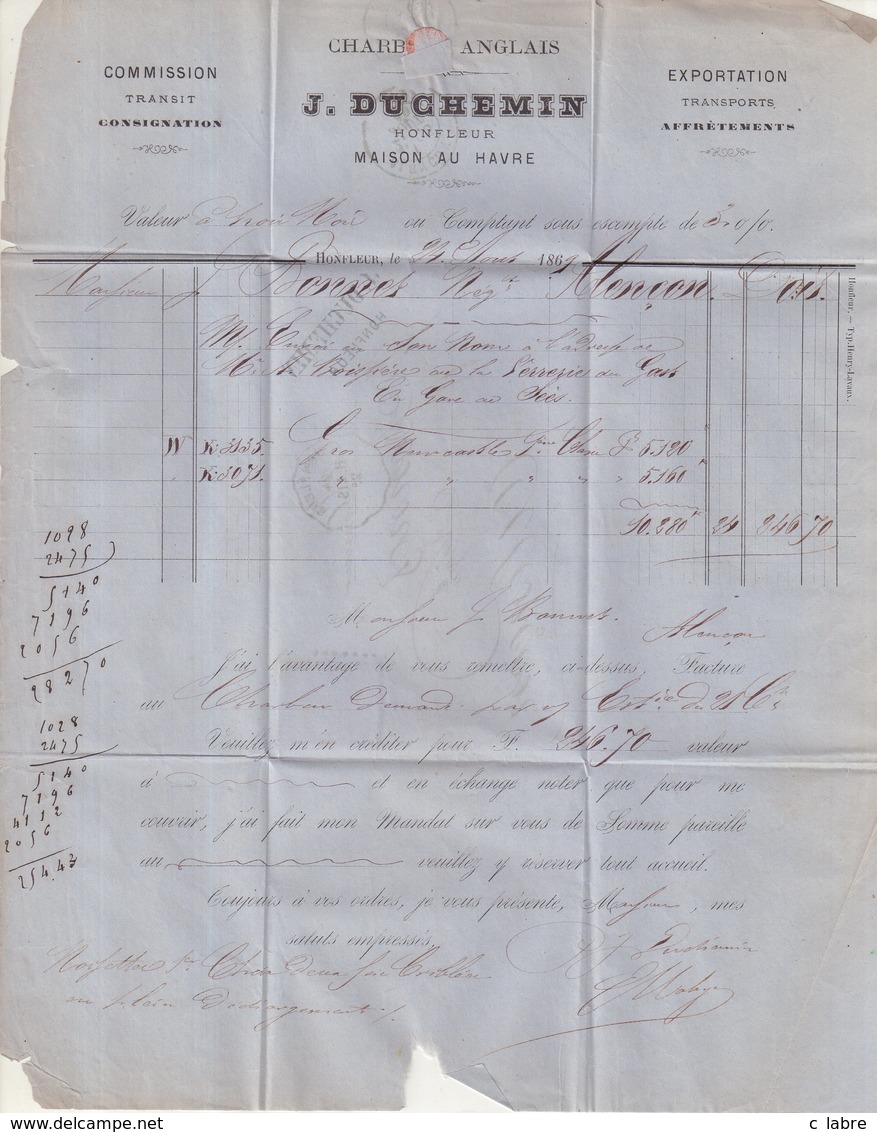 CHARB ANGLAIS
COMMISSION
TRANSIT
CONSIGNATION
J. DUCHEMIN
HONFLEUR
MAISON AU HAVRE
EXPORTATION
TRANSPORTS
AFFRÈTEMENTS
Valeur à trois Mois ou Comptant sous escompte de 3 o/o.
HONFLEUR, le 21 Août 1869
Monsieur J. Bonnet Négt Alençon Doit
M/ Envoi en Son Nom à l'adresse de
la Verrerie du Gast
En Gare de Sées.
W K 3135. Gros Newcastle 1ère Classe 5.120
K 3071. " " " " 5.160
10.280 24 246 70
Honfleur. — Typ. Henry-Lavaux.
1028
2475
5140
7196
2056
28270
1028
2475
5140
7196
4112
2056
254.43
Monsieur J. Bonnet
Alençon
J'ai l'avantage de vous remettre, ci-dessus, Facture
au Charbon
Veuillez m'en créditer pour F. 246.70 valeur
à et en échange noter que pour me
couvrir, j'ai fait mon Mandat sur vous de Somme pareille
au veuillez y réserver tout accueil.
Toujours à vos ordres, je vous présente, Monsieur, mes
saluts empressés,
J. Duchemin
c labre